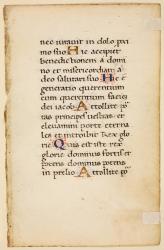 nec iuravit in dolo pxi
mo suo Hic accipiet
benedictionem a domi
no et misericordiam a
deo salutari suo Hic e
generatio querentium
eum querentium faciem
dei iacob Attollite por
tas principes vestras et
elevamini porte eterna
les et introibit Rex glo
rie Quis est iste rex
glorie dominus fortis et
potens dominus potens
in prelio Attollite por